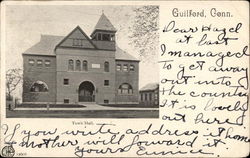 Guilford, Conn.
Dear Hazel
at last
I managed
to get away
out into
the country
It is lovely
out here
Town Hall.
If you write address it home
mother will forward it.
Yours Eunice